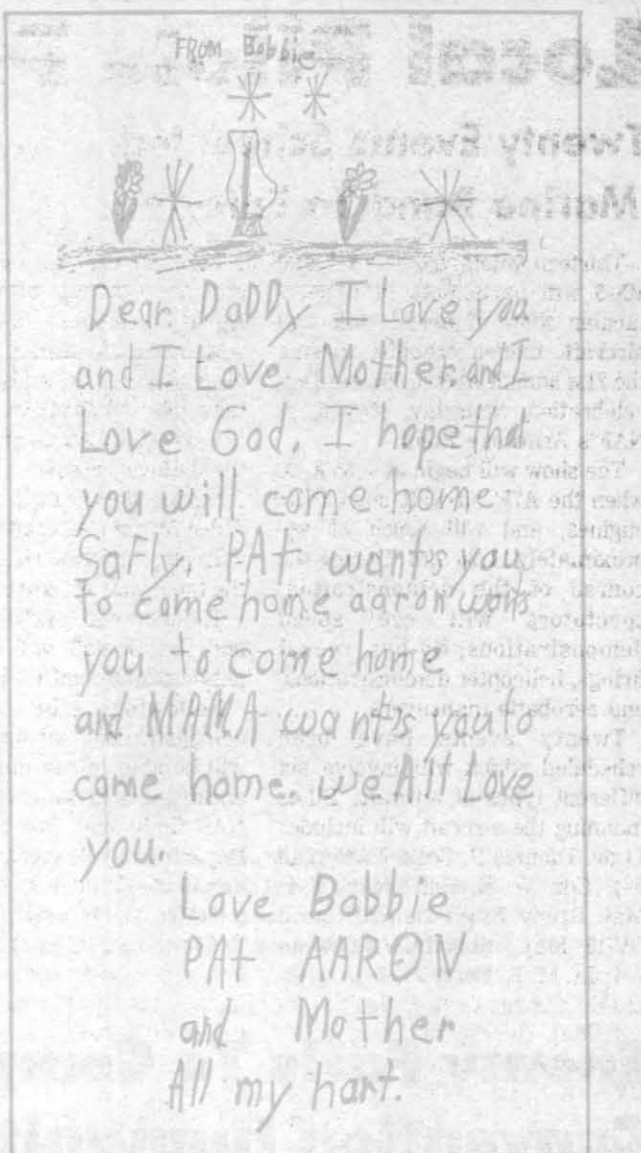 FROM Bobbie
Dear DaDDy I Love you
and I Love Mother. and I
Love God. I hope that
you will come home
SaFly. PAt wants you
to come home aaron wans
you to come home
and MAMA want's you to
come home. we All Love
you.
Love Bobbie
PAt AARON
and Mother
All my hart.